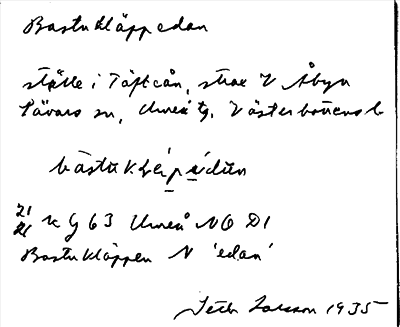 Bastukläppedan
ställe i Täfteån, strax V Åbyn
Sävars sn, Umeå tg, Västerbottens l.
bastukläpädun
21 K G 63 Umeå NO D1
21
Bastukläppen N 'edan'
Seth Larsson 1935